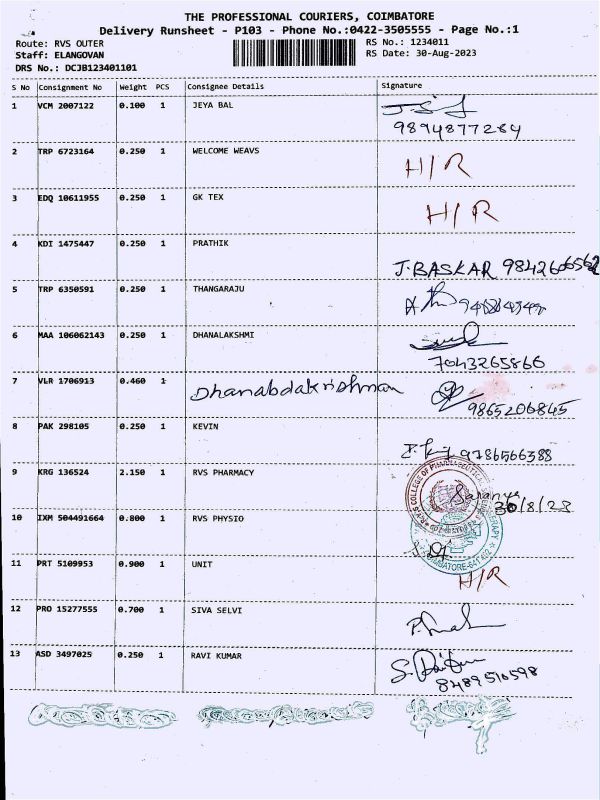 THE PROFESSIONAL COURIERS, COIMBATORE
Delivery Runsheet - P103 - Phone No.:0422-3505555 - Page No.:1
Route: RVS OUTER RS No.: 1234011
Staff: ELANGOVAN RS Date: 30-Aug-2023
DRS No.: DCJB123401101
S No Consignment No Weight PCS Consignee Details Signature
1 VCM 2007122 0.100 1 JEYA BAL
9894877264
2 TRP 6723164 0.250 1 WELCOME WEAVS H/R
3 EDQ 10611955 0.250 1 GK TEX H/R
4 KDI 1475447 0.250 1 PRATHIK J.BASKAR 9842606562
5 TRP 6350591 0.250 1 THANGARAJU
6 MAA 106062143 0.250 1 DHANALAKSHMI
7043265866
7 VLR 1706913 0.460 1 Dhanabdakrishman
9865206845
8 PAK 298105 0.250 1 KEVIN 9786566388
9 KRG 136524 2.150 1 RVS PHARMACY Saranya
30/8/23
10 IXM 504491664 0.800 1 RVS PHYSIO
COIMBATORE-641 402
11 PRT 5109953 0.900 1 UNIT H/R
12 PRO 15277555 0.700 1 SIVA SELVI
13 ASD 3497025 0.250 1 RAVI KUMAR
8489510598